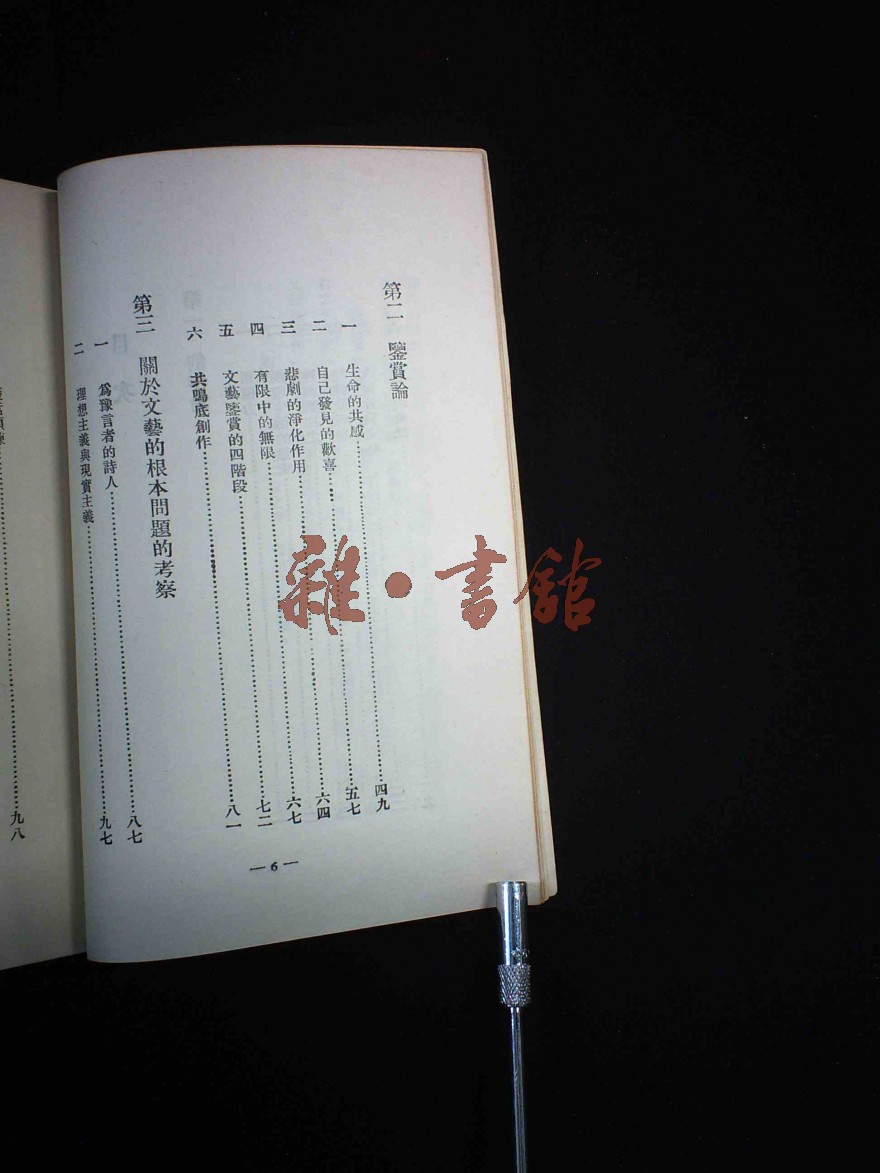 第二 鑒賞論
一 生命的共感……四九
二 自己發見的歡喜……五七
三 悲劇的淨化作用……六四
四 有限中的無限……六七
五 文藝鑒賞的四階段……七二
六 共鳴底創作……八一
第三 關於文藝的根本問題的考察
一 爲豫言者的詩人……八七
二 理想主義與現實主義……九七
—6—
九八
雜·書館